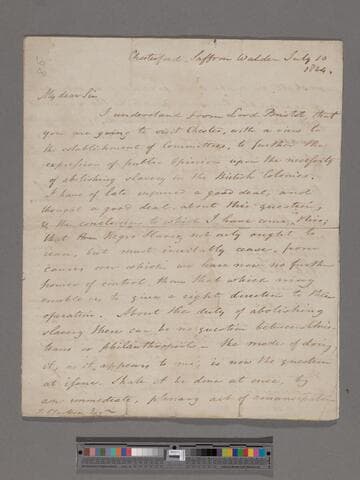 Chesterford, Saffron Walden July 10
1824.
My dear Sir
I understand from Lord Bristol, that
you are going to visit Chester, with a view to
the establishment of Committees, to further the
expression of public opinion upon the necessity
of abolishing slavery in the British Colonies.
I have of late enquired a good deal, and
thought a good deal about this question,
& the conclusion to which I have come, this;
that Negro Slavery not only ought to
cease, but must inevitably cease, from
causes over which we have now no further
power of control than that which may
enable us to give a right direction to their
operation. About the duty of abolishing
slavery there can be no question between Chris-
tians or philanthropists — the mode of doing
it, as it appears to me, is now the question
at issue. Shall it be done at once, by
an immediate, plenary act of emancipation